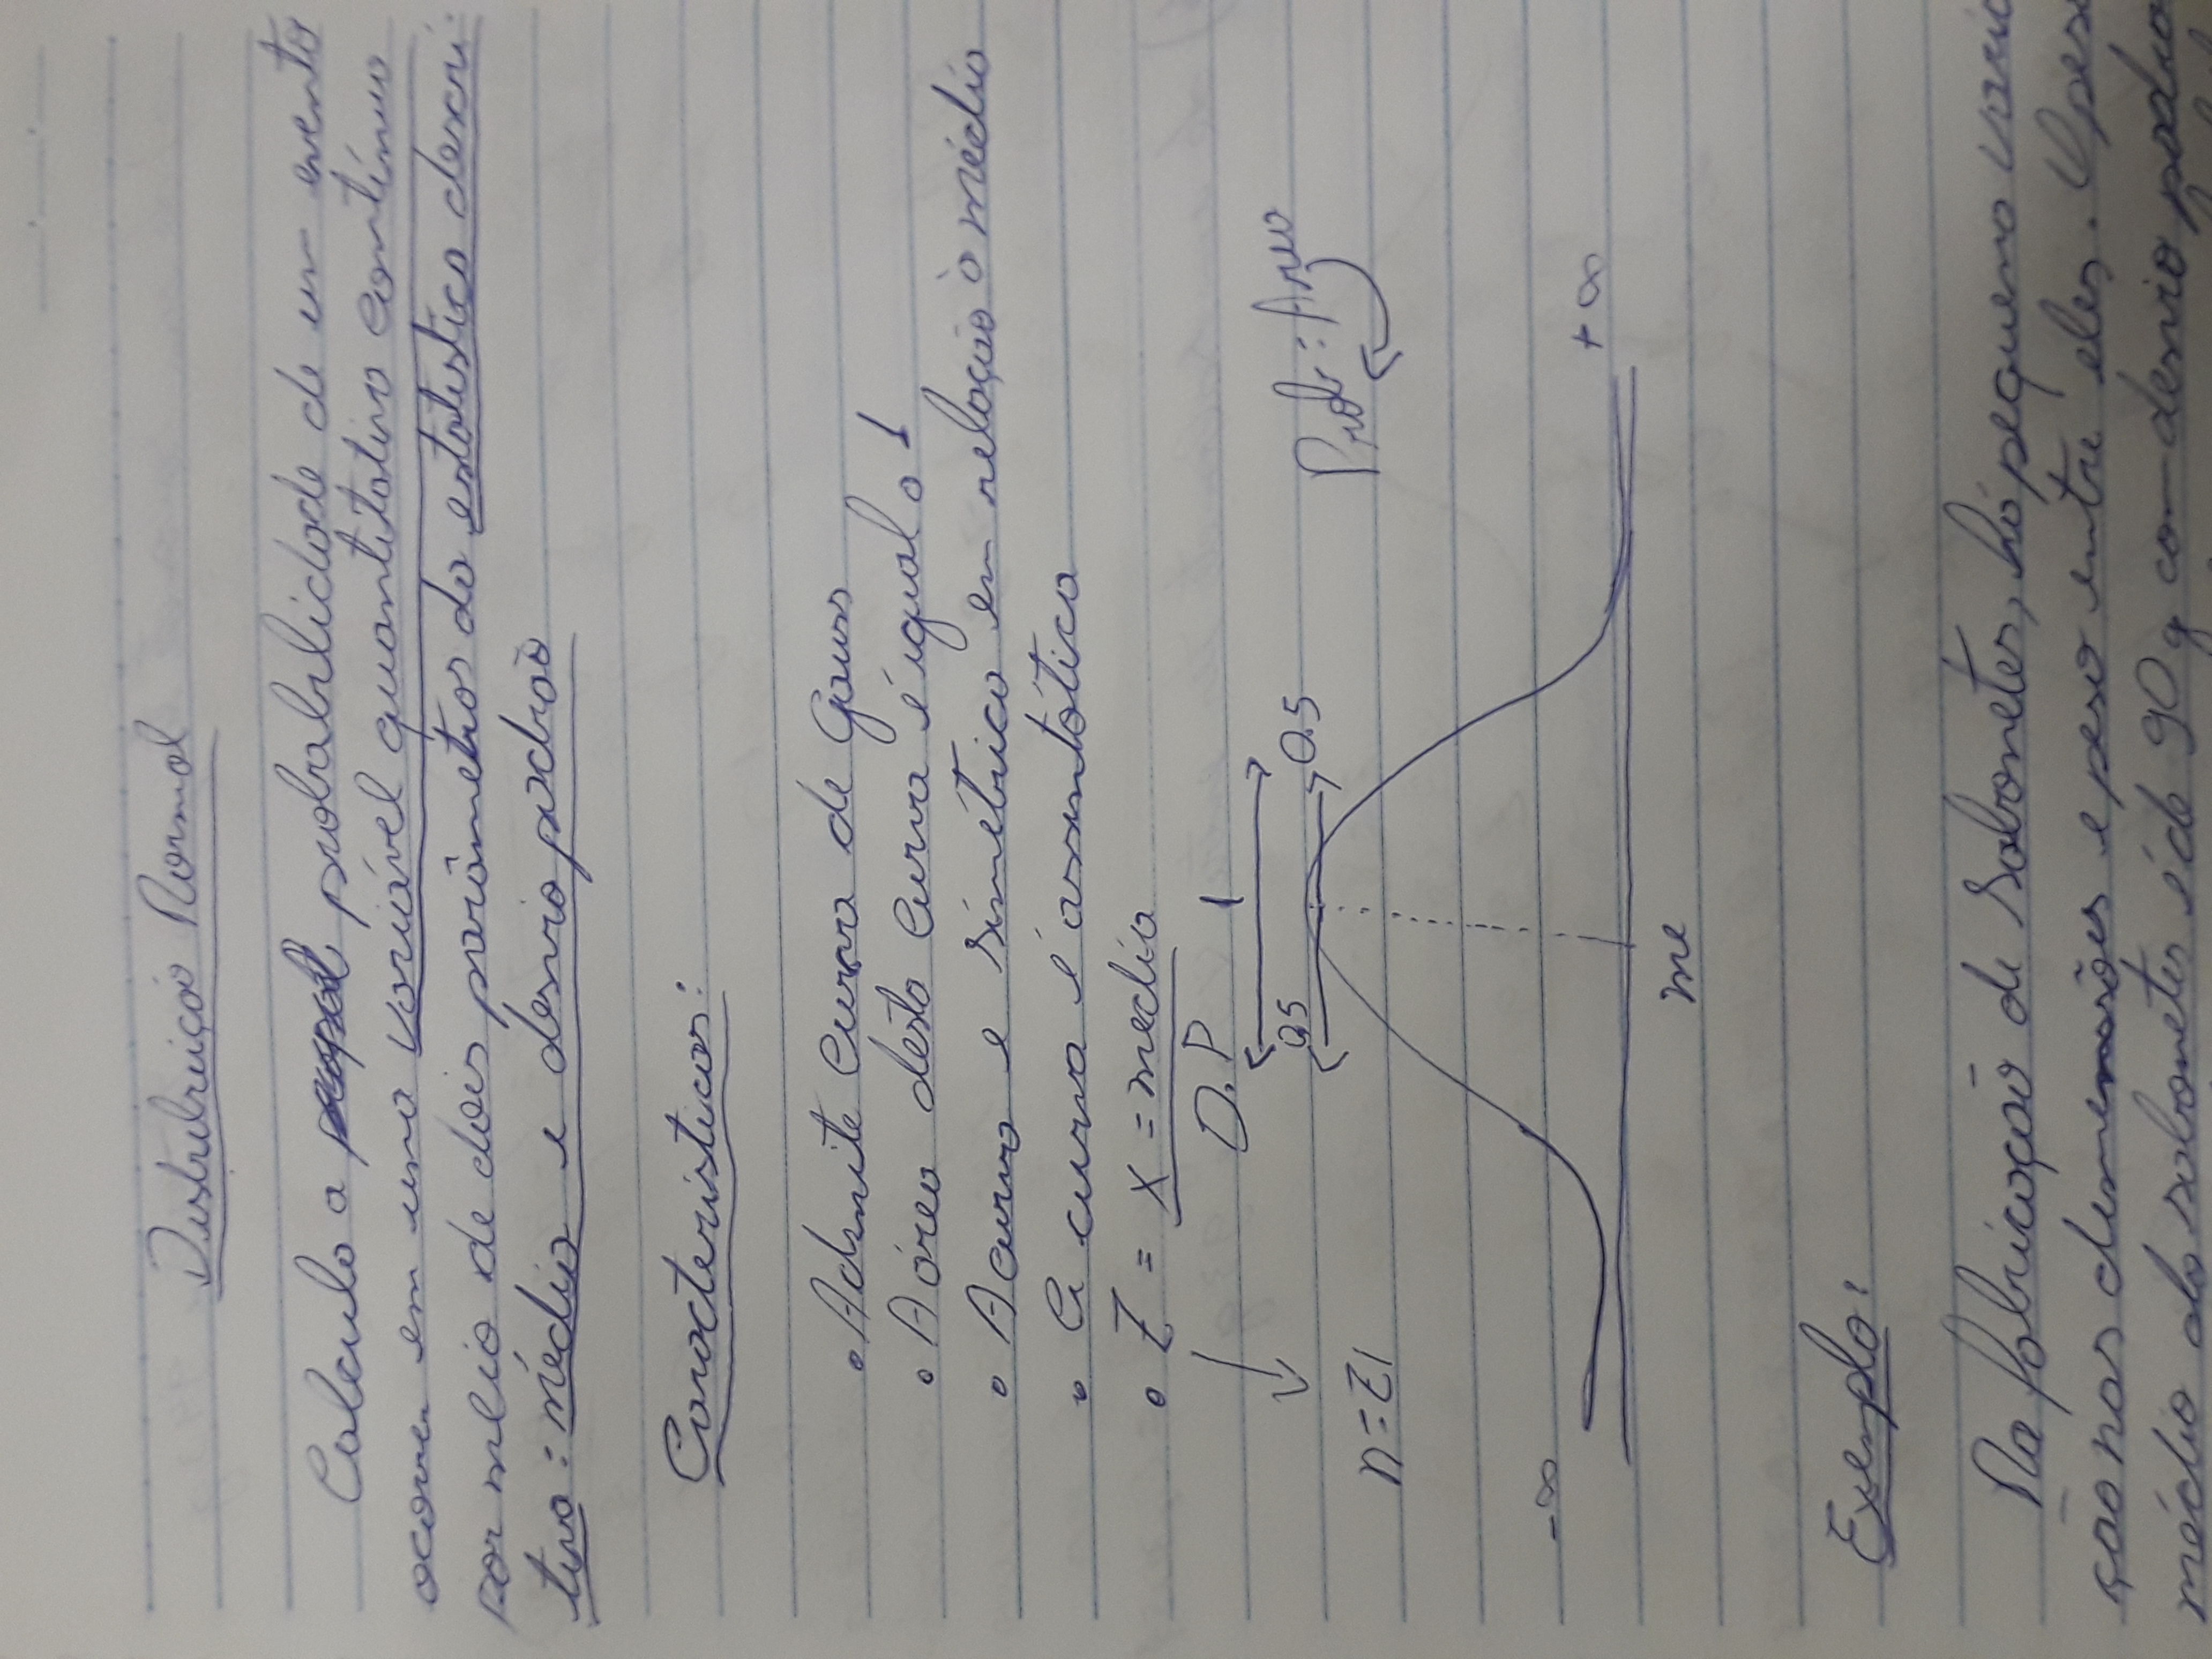 Distribuição Normal
Calculo a probabilidade de um evento
ocorrer em uma variável quantitativa contínua
por meio de dois parâmetros da estatistica descri-
tiva: média e desvio padrão
Caracteristicas:
• Admite Curva de Gauss
• A área desta curva é igual a 1
• A curva e simétrica em relação à média
• A curva é assintótica
• Z = x = media
D.P
1
0,5 0.5
Prob = Area
n = Z1
-∞
+∞
me
Exemplo:
Na fabricação de Sabonetes, há pequena varia
ção nas dimensões e peso entre eles. O peso
médio do sabonetes é de 90 g com desvio padrão